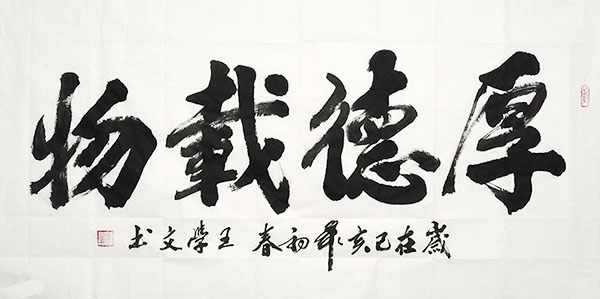 厚德載物
歲在己亥年初春 王學文书